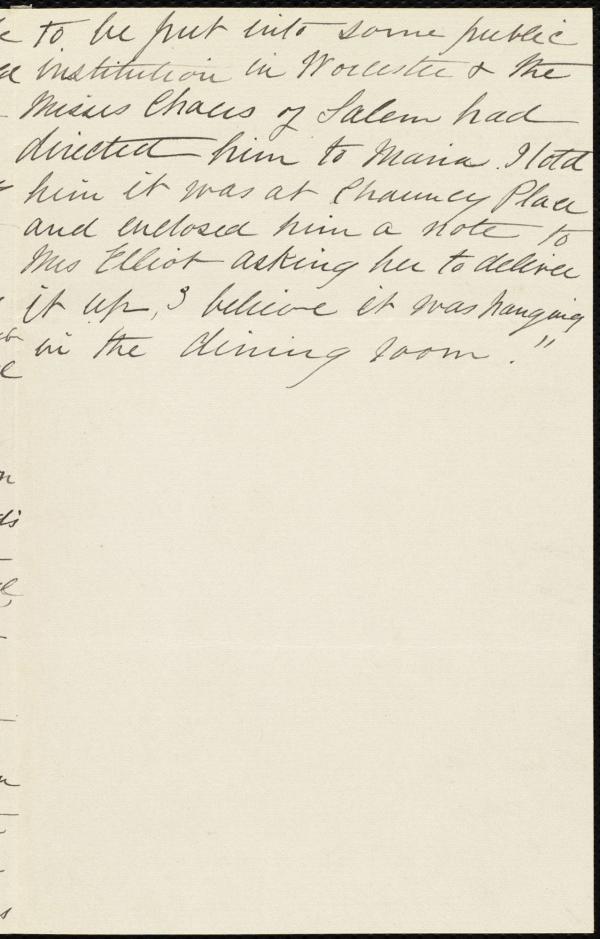 to be put into some public
institution in Worcester & the
Misses Chases of Salem had
directed him to Maria. I told
him it was at Chauncy Place
and enclosed him a note to
Mrs Elliot asking her to deliver
it up, I believe it was hanging
in the dining room."